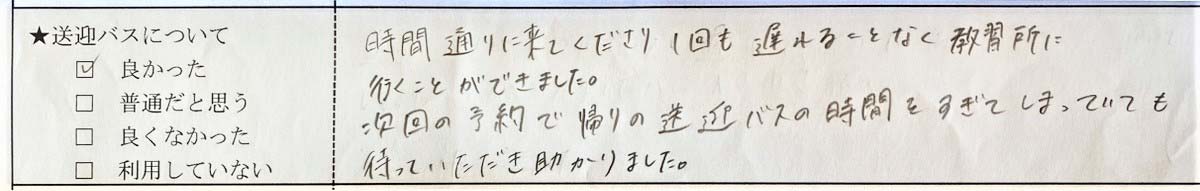 ★送迎バスについて
☑ 良かった
□ 普通だと思う
□ 良くなかった
□ 利用していない
時間通りに来てくださり1回も遅れることなく教習所に
行くことができました。
次回の予約で帰りの送迎バスの時間をすぎてしまっていても
待っていただき助かりました。